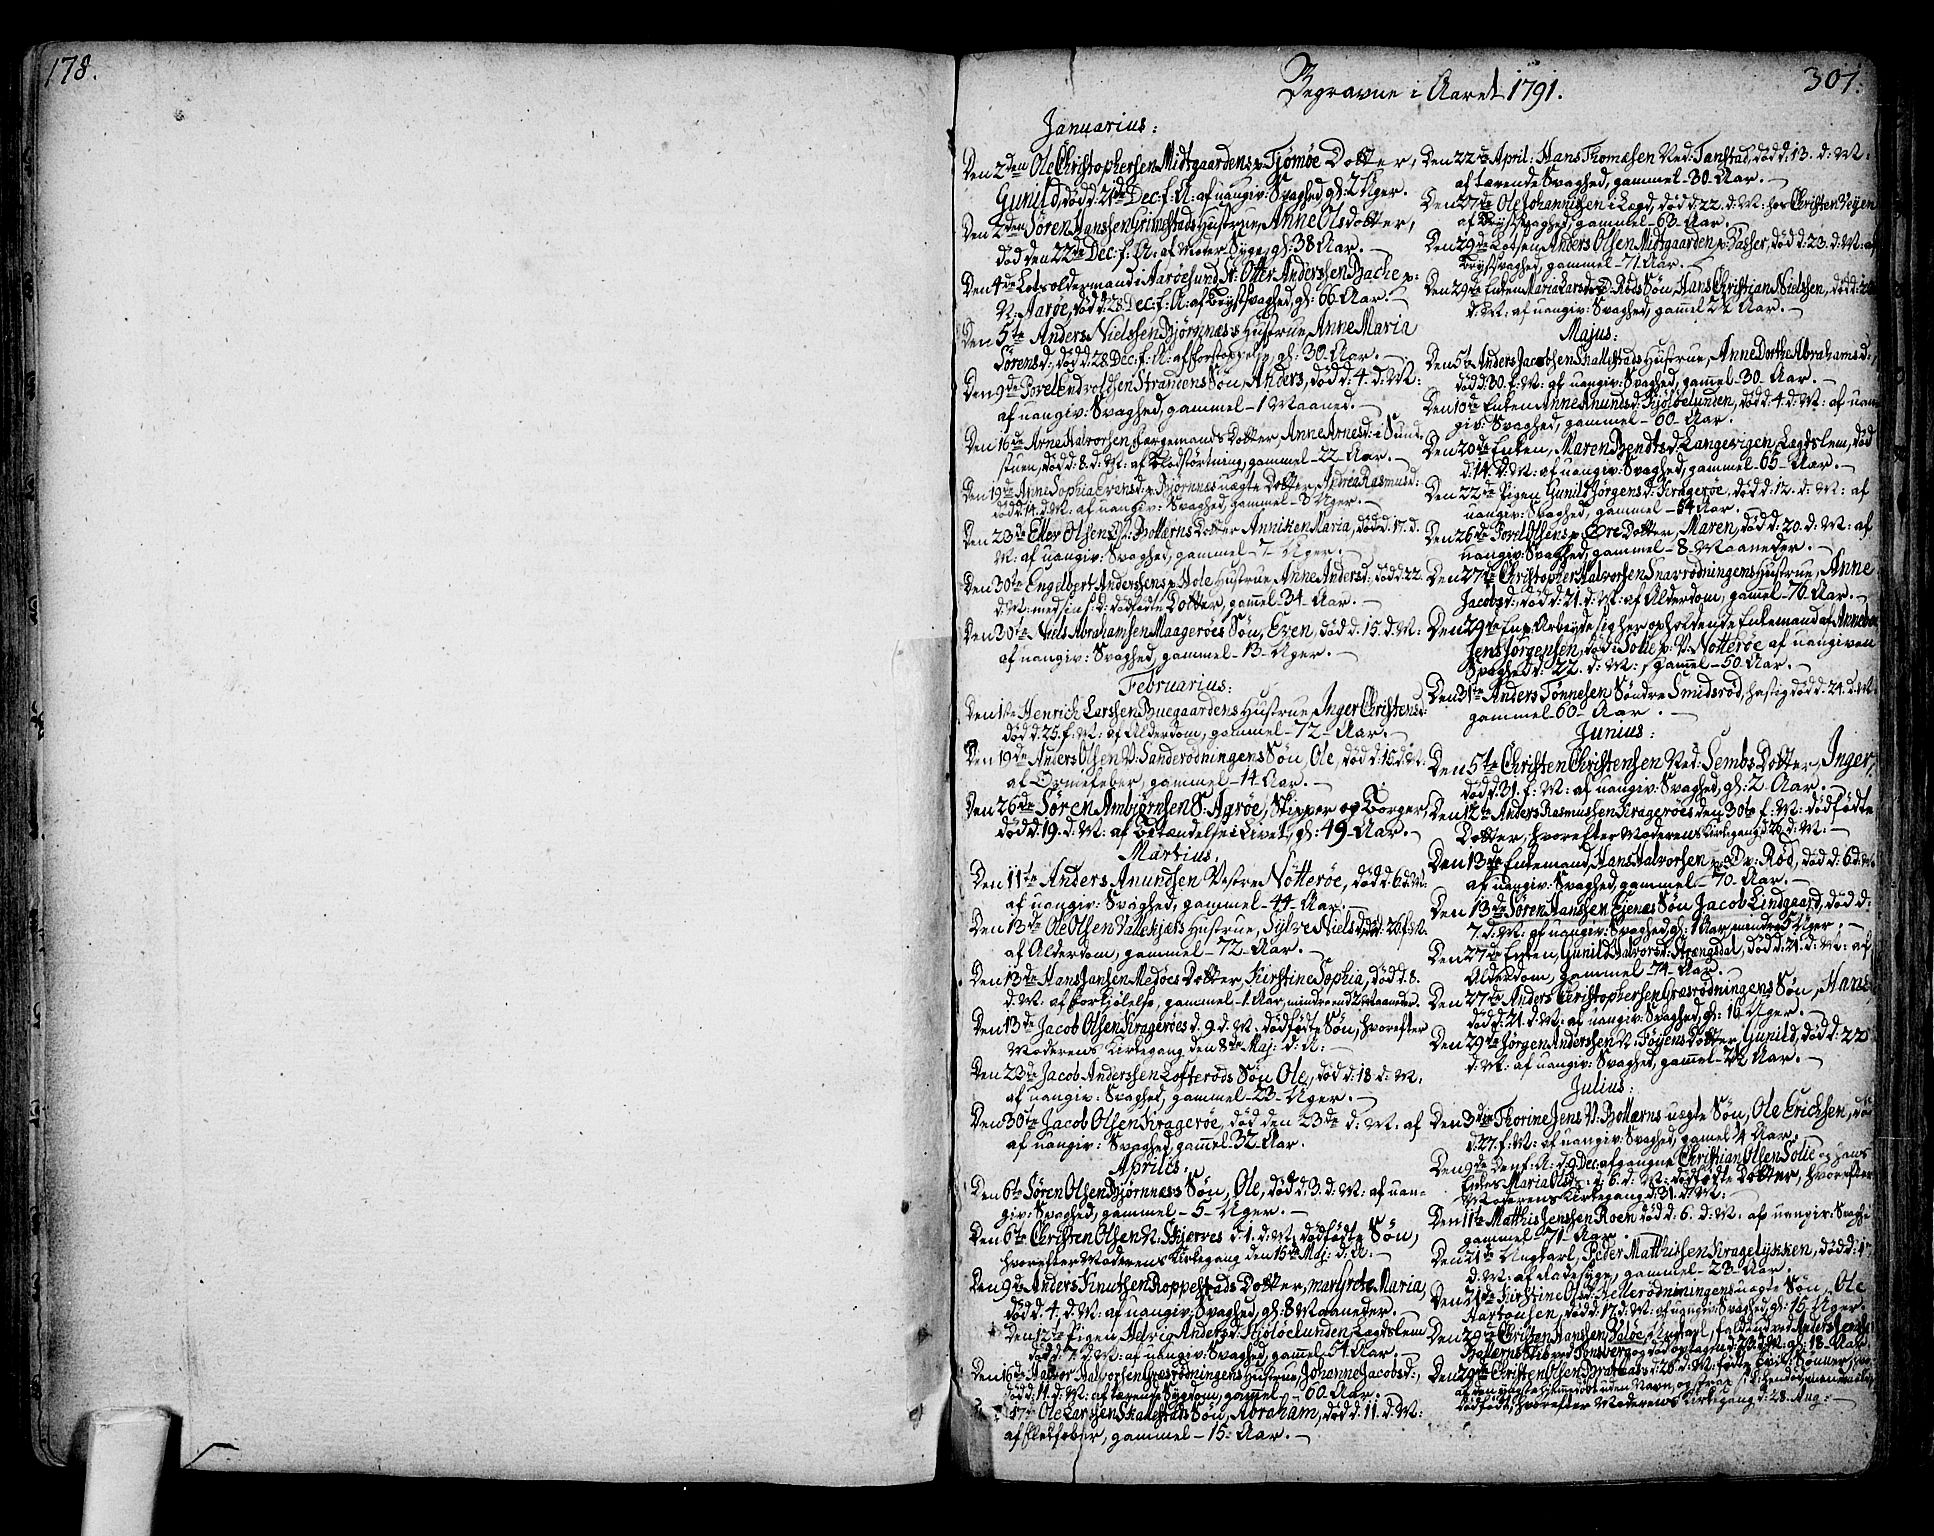 178.
307.
Begravne i Aaret 1791.
Januarius:
Den 2den Ole Christophersen Midtgaardens p: Tjömöe Dotter,
Gunild, död d: 21de Dec: f: A: af uangiv: Svaghed, gl: 2 Uger.
Den 2den Sören Hanssen Grimestads Hustrue, Anne Olsdotter,
död den 22de Dec: f: A: af Moder Syge, gl: 38 Aar.
Den 4de Lotsoldermand i Aaröesund Sr: Otter Anderssen Bache p:
N: Aaröe, död d: 28 Dec: f: A: af Brystsvaghed, gl: 66 Aar.
Den 5te Anders Nielssen Bjørnnæs's Hustrue, Anne Maria
Sörensd:, död d: 28 Dec: f: A: af forstoppelse, gl: 30 Aar.
Den 9de Povel Endvoldsen Strandens Sön, Anders, död d: 4. d: M:
af uangiv: Svaghed, gammel 1 Maaned.
Den 16de Arne Halvorsen, færgemands Dotter, Anne Arnesd: i Sund-
stuen, död d: 8. d: M: af Blodstörtning, gammel 22 Aar.
Den 19de Anne Sophia Evensd: p: Bjørnnæs uægte Dotter, Andrea Rasmusd:
död d: 14. d: M: af uangiv: Svaghed, gammel 3 Uger.
Den 23de Ellev Olsen V: Bollærns Dotter Anniken Maria, död d: 17. d:
M: af uangiv: Svaghed, gammel 7 Uger.
Den 30te Engelbert Anderssens p: Hole Hustrue, Anne Andersd:, död d: 22.
d: M: med sin s: D: dödfödte Dotter, gamel 34 Aar.
Den 30te Niels Abrahamsen Maageröes Sön, Even, död d: 15. d: M:
af uangiv: Svaghed, gammel 13 Uger.
Februarius:
Den 1te Henrich Larssen Buegaardens Hustrue, Inger Christensd:
död d: 25. f: M: af Alderdom, gammel 72 Aar.
Den 19de Anders Olsen V: Sanderödningens Sön, Ole, död d: 15. d: M:
af Ormefeber, gammel 14 Aar.
Den 26de Sören Ambjørnsen S: Aaröe, Skipper og Borger,
död d: 19. d: M: af Betændelse i Livet, gl: 49 Aar.
Martius:
Den 11te Anders Anundsen Vestre Nötteröe, död d: 6 d: M:
af uangiv: Svaghed, gammel 44 Aar.
Den 13de Ole Olsen Vallekjærs Hustrue, Sylve Nielsd: död: 26 f: M:
af Alderdom, gammel 72 Aar.
Den 13de Hans Jansen Medöes Dotter, Kirstine Sophia, död d: 8.
d: M: af Forkjölelse, gammel 1 Aar, mindre end 2 Maaneder.
Den 13de Jacob Olsen Krageröes d. 9. d: M: dödfödte Sön, hvorefter
Moderens Kirkegang den 8de Maj: d: A:
Den 23de Jacob Anderssen Lofteröds Sön Ole, död d: 18 d: M:
af uangiv: Svaghed, gammel 23 Uger.
Den 30te Jacob Olsen Krageröe, död den 23de d: M: af
af uangiv: Svaghed, gamel 32 Aar.
Aprilis:
Den 6te Sören Olsen Bjørnnæs's Sön, Ole, död d: 3. d: M: af uan-
giv: Svaghed, gammel 5 Uger.
Den 6te Christen Olsen N: Skjerves d: 1. d: M: dödfödte Sön,
hvorefter Moderens Kirkegang den 15te Maj: d: A:
Den 9de Anders Knutsen Roppestads Dotter, Margrete Maria,
död d: 4. d: M: af uangiv: Svaghed, gl: 8 Maaneder.
Den 12te Pigen Helvig Andersd: Kjølöelunden, Lægdslem
död d: 7. d: M: af uangiv: Svaghed, gamel 51 Aar.
Den 16de Halvor Halvorsen Græsrödningens Hustrue, Johanne Jacobsd:,
död d: 11. d: M: af tærende Sygdom, gamel 60 Aar.
17de Ole Larssen Skallestads Sön, Abraham, död d: 11. d: M:
af fleckfeber, gammel 15 Aar.
Den 22de April: Hans Thomæsen Ned: Tanstad, död d: 13. d: M:
af tærende Svaghed, gammel 30 Aar.
Den 27de Ole Johannissen i Lægd, död d: 22. d: M: hos Christen Vejen
af Brystsvaghed, gammel 63 Aar.
Den 29de Lotsen Anders Olsen Midtgaarden p: Hasser, död d: 23. d: M: af
Brystsvaghed, gammel 71 Aar.
Den 29de Enken Maria Larsd: D: Röds Sön, Hans Christian Nielssen, död d:
d: M: af uangiv: Svaghed, gamel 2½ Aar.
Majus:
Den 5te Anders Jacobsen Skallestads Hustrue, Anne Dorthe Abrahamsd:,
död d: 30. f: M: af uangiv: Svaghed, gamel 30 Aar.
Den 10de Enken Anne Anundsd: Kjölöelunden, död d: 4. d: M: af uan-
giv: Svaghed, gammel 60 Aar.
Den 20de Enken, Maren Bendtsd: Langevigen, Lægdslem, död
d: 14. d: M: af uangiv: Svaghed, gammel 65 Aar.
Den 22de Pigen Gunild Jörgensd: Krageröe, död d: 12. d: M: af
uangiv: Svaghed, gammel 54 Aar.
Den 26de Povel Olsens p: Öre Dotter, Maren, död d: 20. d: M: af
uangiv: Svaghed, gammel 8 Maaneder.
Den 27de Christopher Halvorsen Snarrödningens Hustrue, Anne
Jacobsd:, död d: 21. d: M: af Alderdom, gamel 76 Aar.
Den 29de En p: Arbeyde sig her opholdende Enkemand af Anneboe
Jens Jörgensen, död i Solie p: V: Nötteröe af uangiven
Svaghed d: 22. d: M:, gamel 50 Aar.
Den 31te Anders Tönnesen Söndre Smidsröd, hastig död d: 24. d: M:
gammel 60 Aar.
Junius:
Den 5te Christen Christensen Ned: Sembs Dotter, Inger,
död d: 31. f: M: af uangiv: Svaghed, gl: 2 Aar.
Den 12te Anders Rasmussen Krageröes den 30te f: M: dödfödte
Dotter, hvorefter Moderens Kirkegang d: 26. d: M:
Den 13de Enkemand, Hans Halvorsen p: Öv: Röd, död d: 6 d: M:
af uangiv: Svaghed, gammel 70 Aar.
Den 13de Sören Hanssen Ejenæs Sön Jacob Lindgaard, död d:
7. d: M: af uangiv: Svaghed, gl: 1 Aar, mindre 3 Uger.
Den 27de Enken, Gunild Halvorsd: Strengsdal, död d: 21. d: M: af
Alderdom, gammel 74 Aar.
Den 27de Anders Christophersen Græsrödningens Sön, Hans,
död d: 21. d: M: af uangiv: Svaghed, gl: 16 Uger.
Den 29de Jörgen Anderssen N: Föyens Dotter, Gunild, död d: 22
d: M: af uangiv: Svaghed, gamel 7½ Aar.
Julius:
Den 3die Thorine Jensd: V: Bollærns uægte Sön, Ole Erichsen, död
d: 27. f: M: af uangiv: Svaghed, gamel ¼ Aar.
Den 9de Den f: A: d: 9 Dec: afgangne Christian Olsen Solie og hans
Enkes Maria Olsd:s d: 6. d: M: dödfödte Dotter, hvorefter
Moderens Kirkegang d: 31. d: M:
Den 11te Matthis Jenssen Roen, död d: 6. d: M: af uangiv: Svaghed
gammel 71 Aar.
Den 21de Ungkarl, Peder Matthissen Kragelykken, död d: 17
d: M: af fladesyge, gammel 23 Aar.
Den 21de Kirstine Olsd: Hellerödningens uægte Sön, Ole
Aartousen, död d: 17. d: M: af uangiv: Svaghed, gl: 15 Uger.
Den 29de Christen Hanssen Valöe, Ungkarl, faldt ud ved Anders
Bollærns Skib ved Tonsberg og död optagen d: 20. d: M: gl: 18 Aar.
Den 29de Christen Olsen Brattaas's d: 26. d: M: födte tvil: Sönner,
af den yngste hjemmedöbt uden Navn, og strax
Dödfödt, hvorefter Moderens Kirkegang d: 28. Aug: